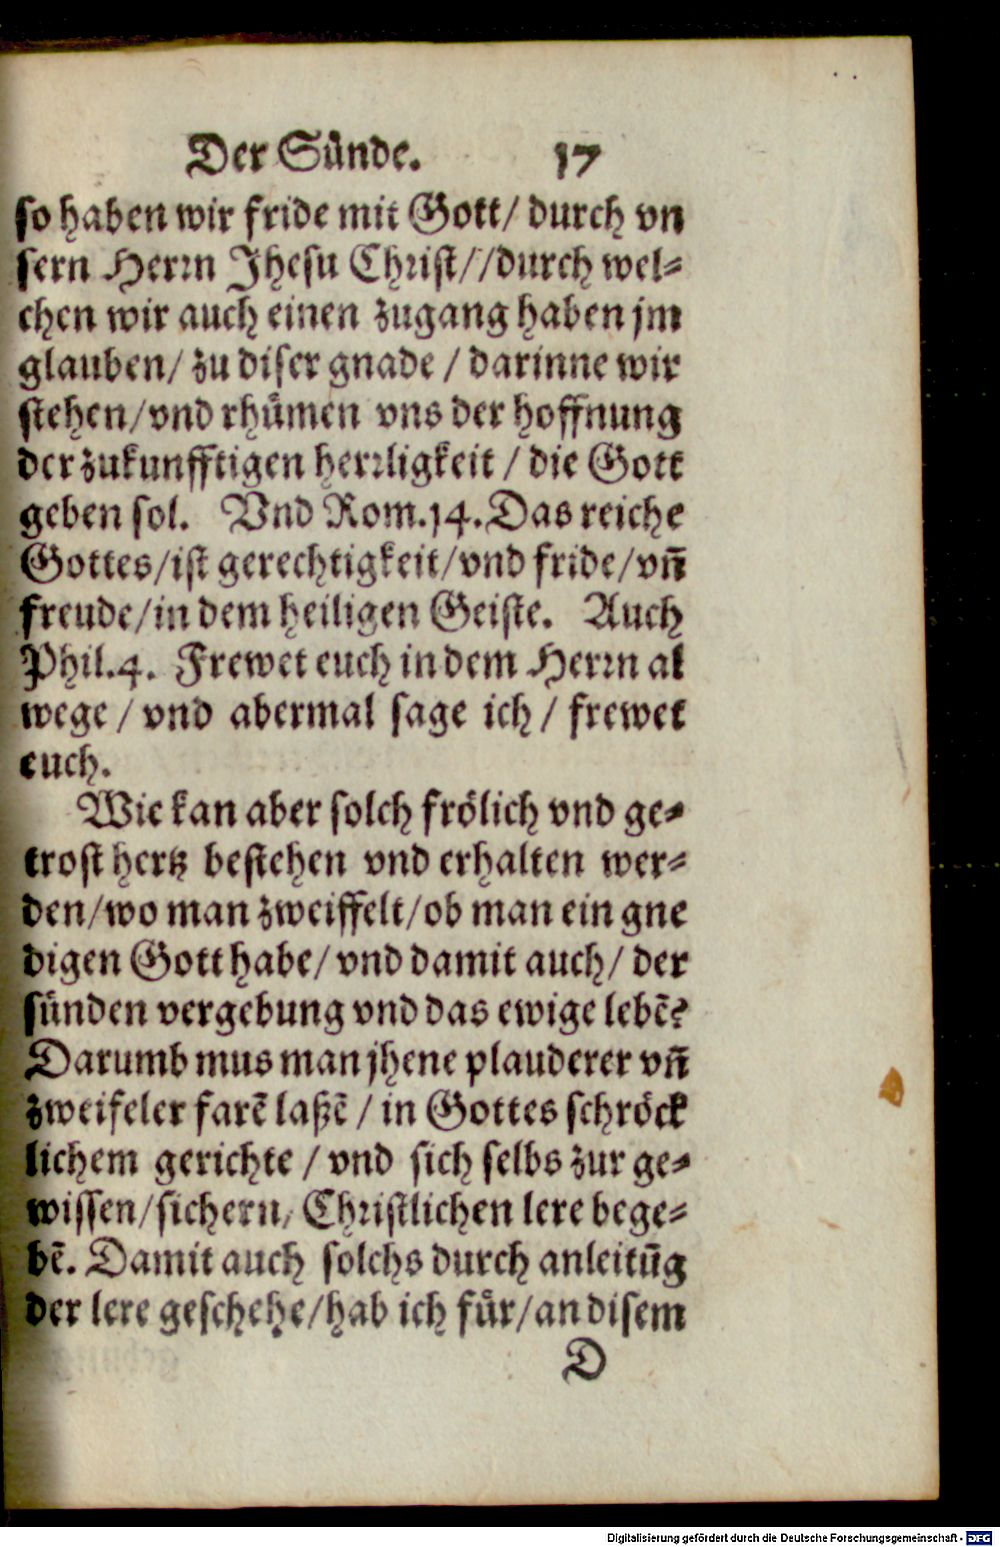 Der Sünde. 17
so haben wir fride mit Gott/ durch vn
sern Herrn Jhesu Christ//durch wel⸗
chen wir auch einen zugang haben jm
glauben/ zu diser gnade / darinne wir
stehen/vnd rhümen vns der hoffnung
der zukunfftigen herrligkeit / die Gott
geben sol. Vnd Rom.14. Das reiche
Gottes/ist gerechtigkeit/vnd fride/vñ
freude/in dem heiligen Geiste. Auch
Phil.4. Frewet euch in dem Herrn al
wege / vnd abermal sage ich / frewet
euch.
Wie kan aber solch frölich vnd ge⸗
trost hertz bestehen vnd erhalten wer⸗
den/wo man zweiffelt/ob man ein gne
digen Gott habe/ vnd damit auch/ der
sünden vergebung vnd das ewige lebē?
Darumb mus man jhene plauderer vñ
zweifeler farē laßē / in Gottes schröck
lichem gerichte / vnd sich selbs zur ge⸗
wissen/sichern, Christlichen lere bege⸗
bē. Damit auch solchs durch anleitūg
der lere geschehe/hab ich für/an disem
D
Digitalisierung gefördert durch die Deutsche Forschungsgemeinschaft - DFG